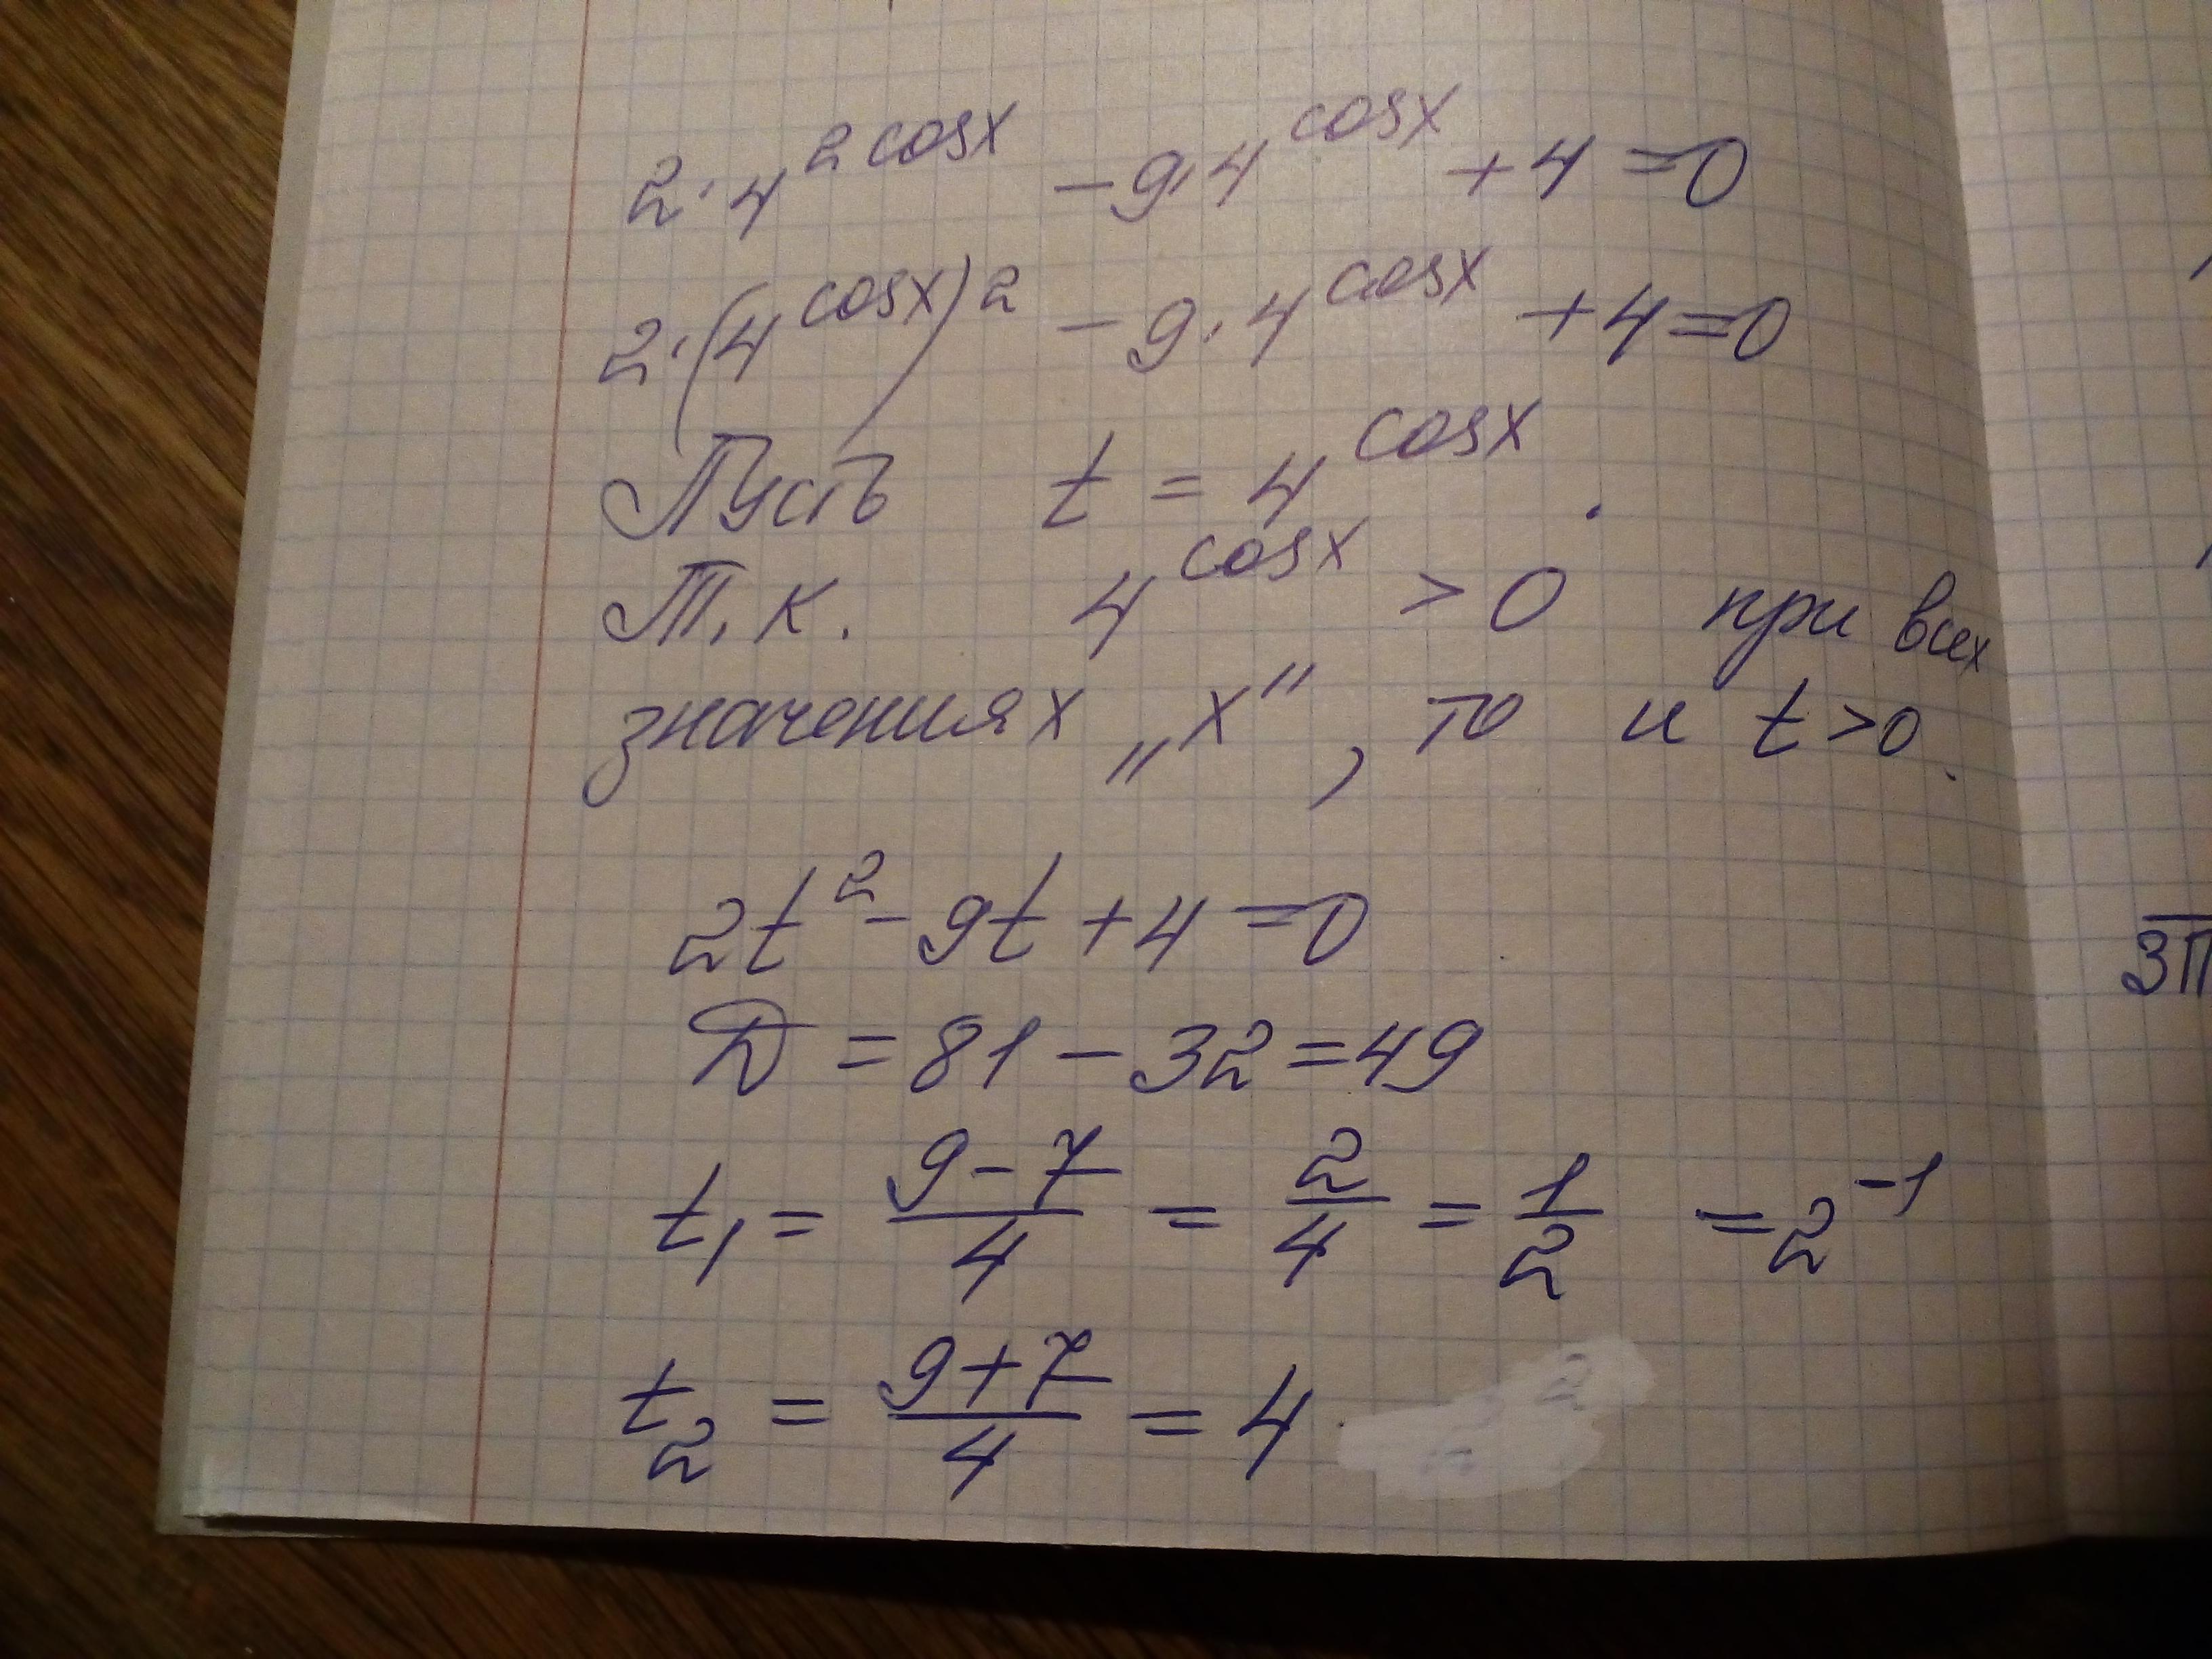 2·4^(2cosx) − 9·4^(cosx) + 4 = 0
2·(4^(cosx))² − 9·4^(cosx) + 4 = 0
Пусть t = 4^(cosx).
Т.к. 4^(cosx) > 0 при всех
значениях „x", то и t > 0.
2t² − 9t + 4 = 0
D = 81 − 32 = 49
t₁ = (9−7)/4 = 2/4 = 1/2 = 2⁻¹
t₂ = (9+7)/4 = 4
3π